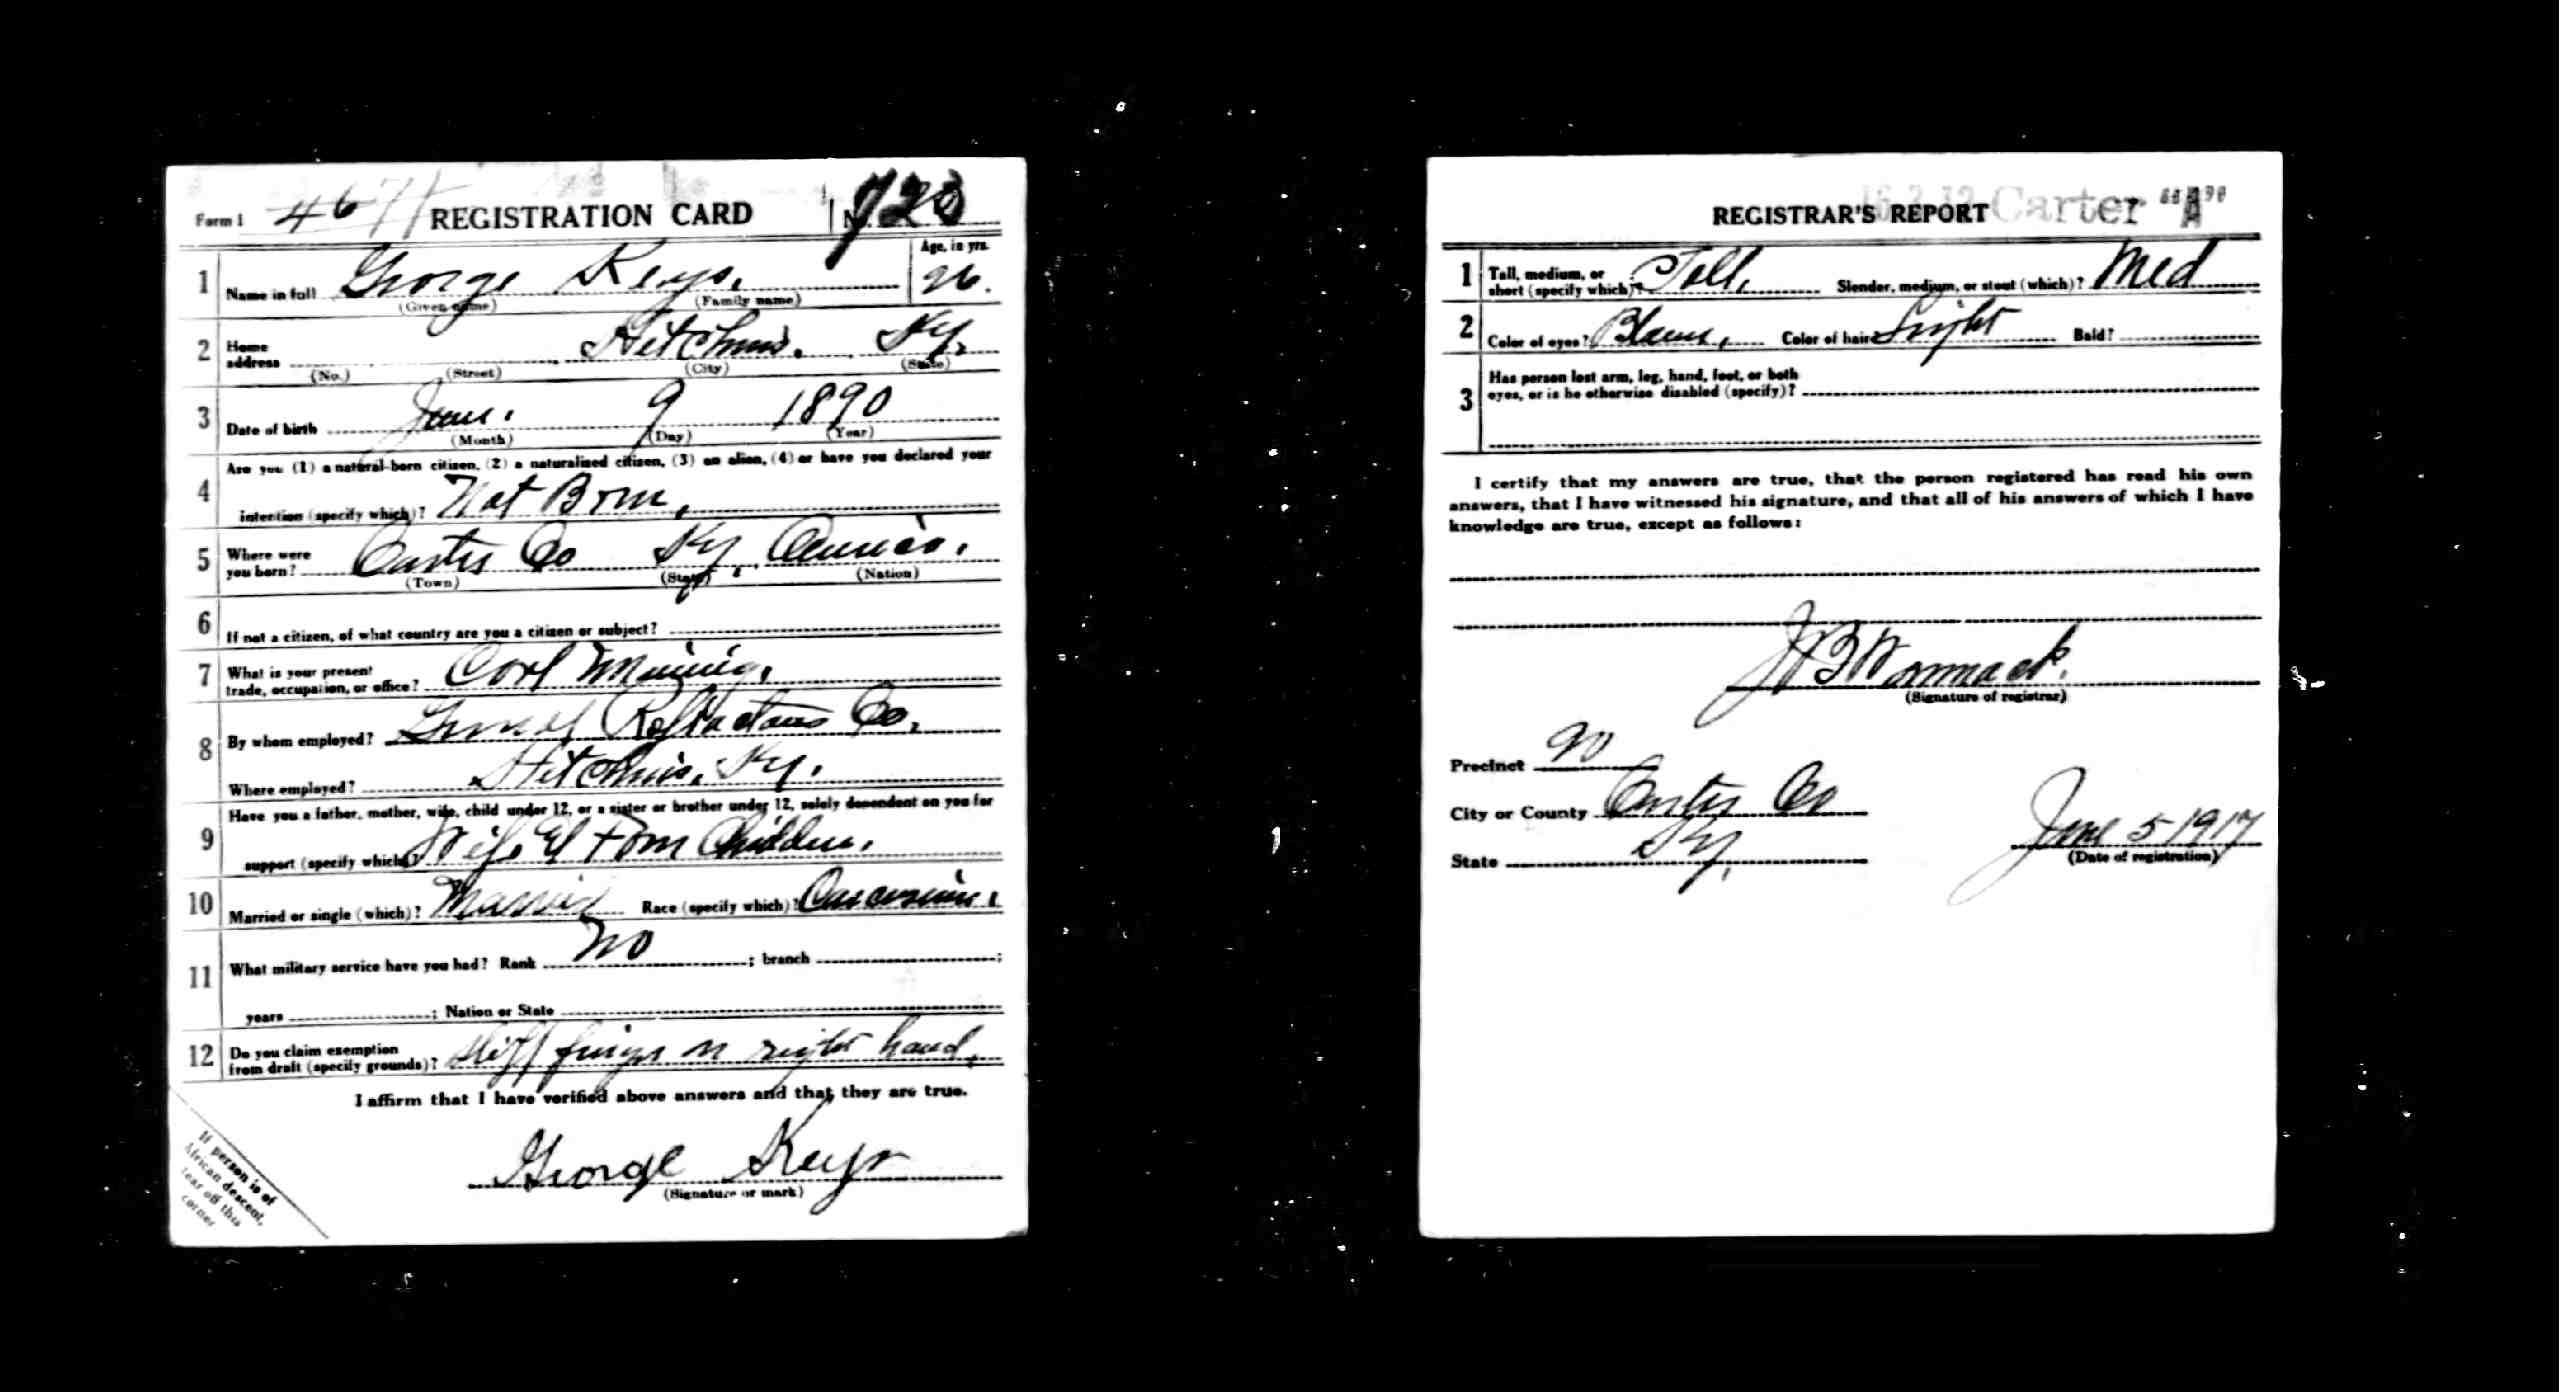 Form 1 4671 REGISTRATION CARD No. 723
Age, in yrs.
1 Name in full George Keys. 26.
(Given name) (Family name)
2 Home address Hitchins. Ky.
(No.) (Street) (City) (State)
3 Date of birth 9 1890
(Month) (Day) (Year)
Are you (1) a natural-born citizen, (2) a naturalized citizen, (3) an alien, (4) or have you declared your
4 intention (specify which)? Nat Born.
5 Where were you born? Carter Co Ky. America.
(Town) (State) (Nation)
6 If not a citizen, of what country are you a citizen or subject?
7 What is your present trade, occupation, or office? Mining.
8 By whom employed? Refractories Co.
Where employed? Hitchins. Ky.
Have you a father, mother, wife, child under 12, or a sister or brother under 12, solely dependent on you for
9 support (specify which)? Wife Children.
10 Married or single (which)? Married Race (specify which)? Caucasian
11 What military service have you had? Rank No ; branch ;
years ; Nation or State
12 Do you claim exemption from draft (specify grounds)? stiff finger on right hand.
I affirm that I have verified above answers and that they are true.
George Keys
(Signature or mark)
If person is of
African descent,
tear off this
corner
REGISTRAR'S REPORT Carter "A"
1 Tall, medium, or short (specify which)? Tall. Slender, medium, or stout (which)? Med
2 Color of eyes? Color of hair? Light Bald?
3 Has person lost arm, leg, hand, foot, or both
eyes, or is he otherwise disabled (specify)?
I certify that my answers are true, that the person registered has read his own
answers, that I have witnessed his signature, and that all of his answers of which I have
knowledge are true, except as follows:
J B Wommack.
(Signature of registrar)
Precinct 20
City or County Carter Co
State Ky.
June 5 1917
(Date of registration)